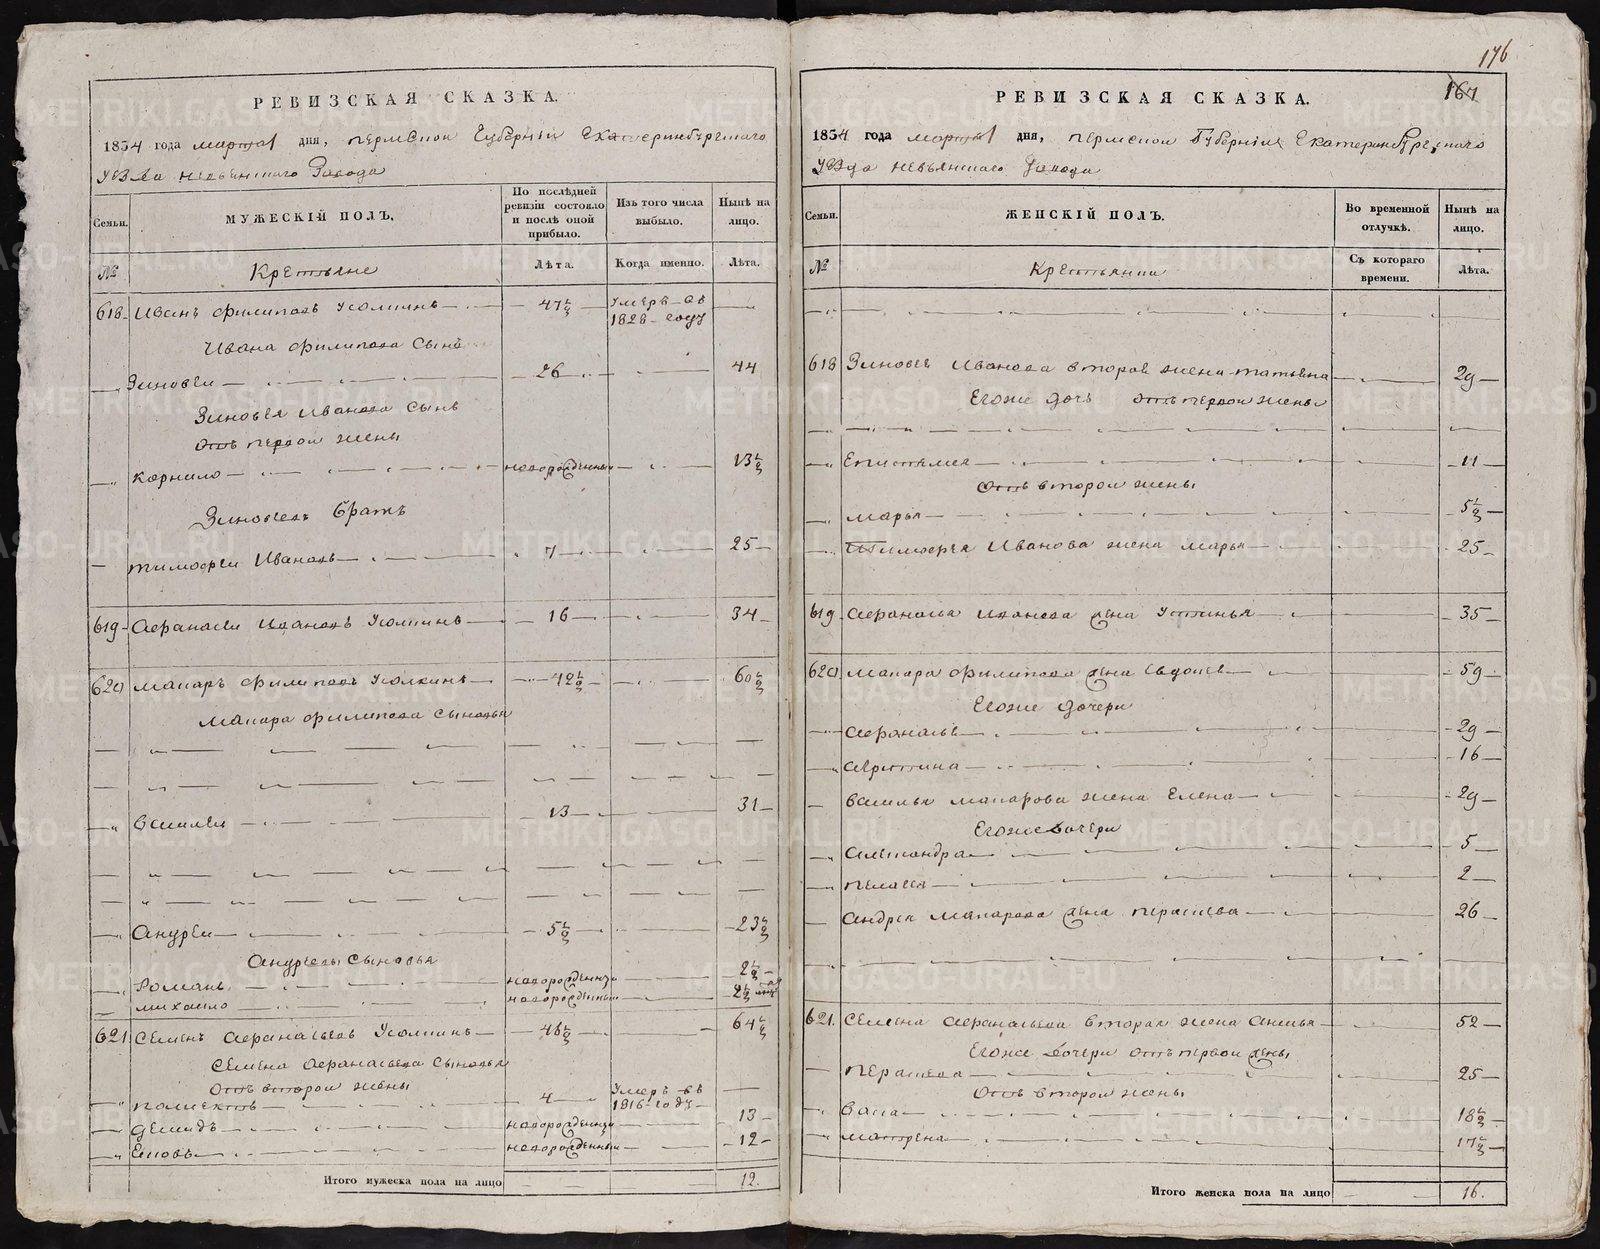 176
РЕВИЗСКАЯ СКАЗКА.
1834 года марта 1 дня, Пермской Губернии Екатеринбургского
уезда Невьянского Завода
Семьи.
МУЖЕСКІЙ ПОЛЪ,
По послѣдней ревизіи состояло и послѣ оной прибыло.
Изъ того числа выбыло.
Нынѣ на лицо.
№
Крестьяне
Лѣта.
Когда именно.
Лѣта.
618 Иванъ Филиповъ Усолкинъ 47 1/2 Умеръ въ 1828 году
Ивана Филипова сынъ
Зиновей 26 44
Зиновья Иванова сынъ
отъ первой жены
Корнило новорожденный 13 1/2
Зиновеевъ братъ
Тимофей Ивановъ 7 25
619 Афанасей Ивановъ Усолкинъ 16 34
620 Макаръ Филиповъ Усолкинъ 42 1/2 60 1/2
Макара Филипова сыновья
Василей 13 31
Андрей 5 1/2 23 1/2
Андреевы сыновья
Романъ новорожденный 2 1/2
Михайло новорожденный 2 1/2
621 Семенъ Афанасьевъ Усолкинъ 46 1/2 64 1/2
Семена Афанасьева сыновья
отъ второй жены
Полиектъ 4 Умеръ въ 1816 году
Демидъ новорожденный 13
новорожденный 12
Итого мужеска пола на лицо 12.
167
РЕВИЗСКАЯ СКАЗКА.
1834 года марта 1 дня, Пермской Губерніи Екатеринбургского
уезда Невьянского Завода
Семьи.
ЖЕНСКІЙ ПОЛЪ.
Во временной отлучкѣ.
Нынѣ на лицо.
№
Крестьянки
Съ котораго времени.
Лѣта.
618 Зиновья Иванова вторая жена Татьяна 29
Егоже дочь отъ первой жены
Епистимея 11
отъ второй жены
Марья 5 1/2
Тимофея Иванова жена Марья 25
619 Афанасья Иванова жена Устинья 35
620 Макара Филипова жена Евдокея 59
Егоже дочери
Афанасья 29
16
Василья Макарова жена Елена 29
Егоже дочери
Александра 5
Пелагея 2
Андрея Макарова жена Парасева 26
621. Семена Афанасьева вторая жена 52
Егоже дочери отъ первой жены
Парасева 25
отъ второй жены
18 1/2
Матрена 17 1/2
Итого женска пола на лицо 16.
METRIKI.GASO-URAL.RU